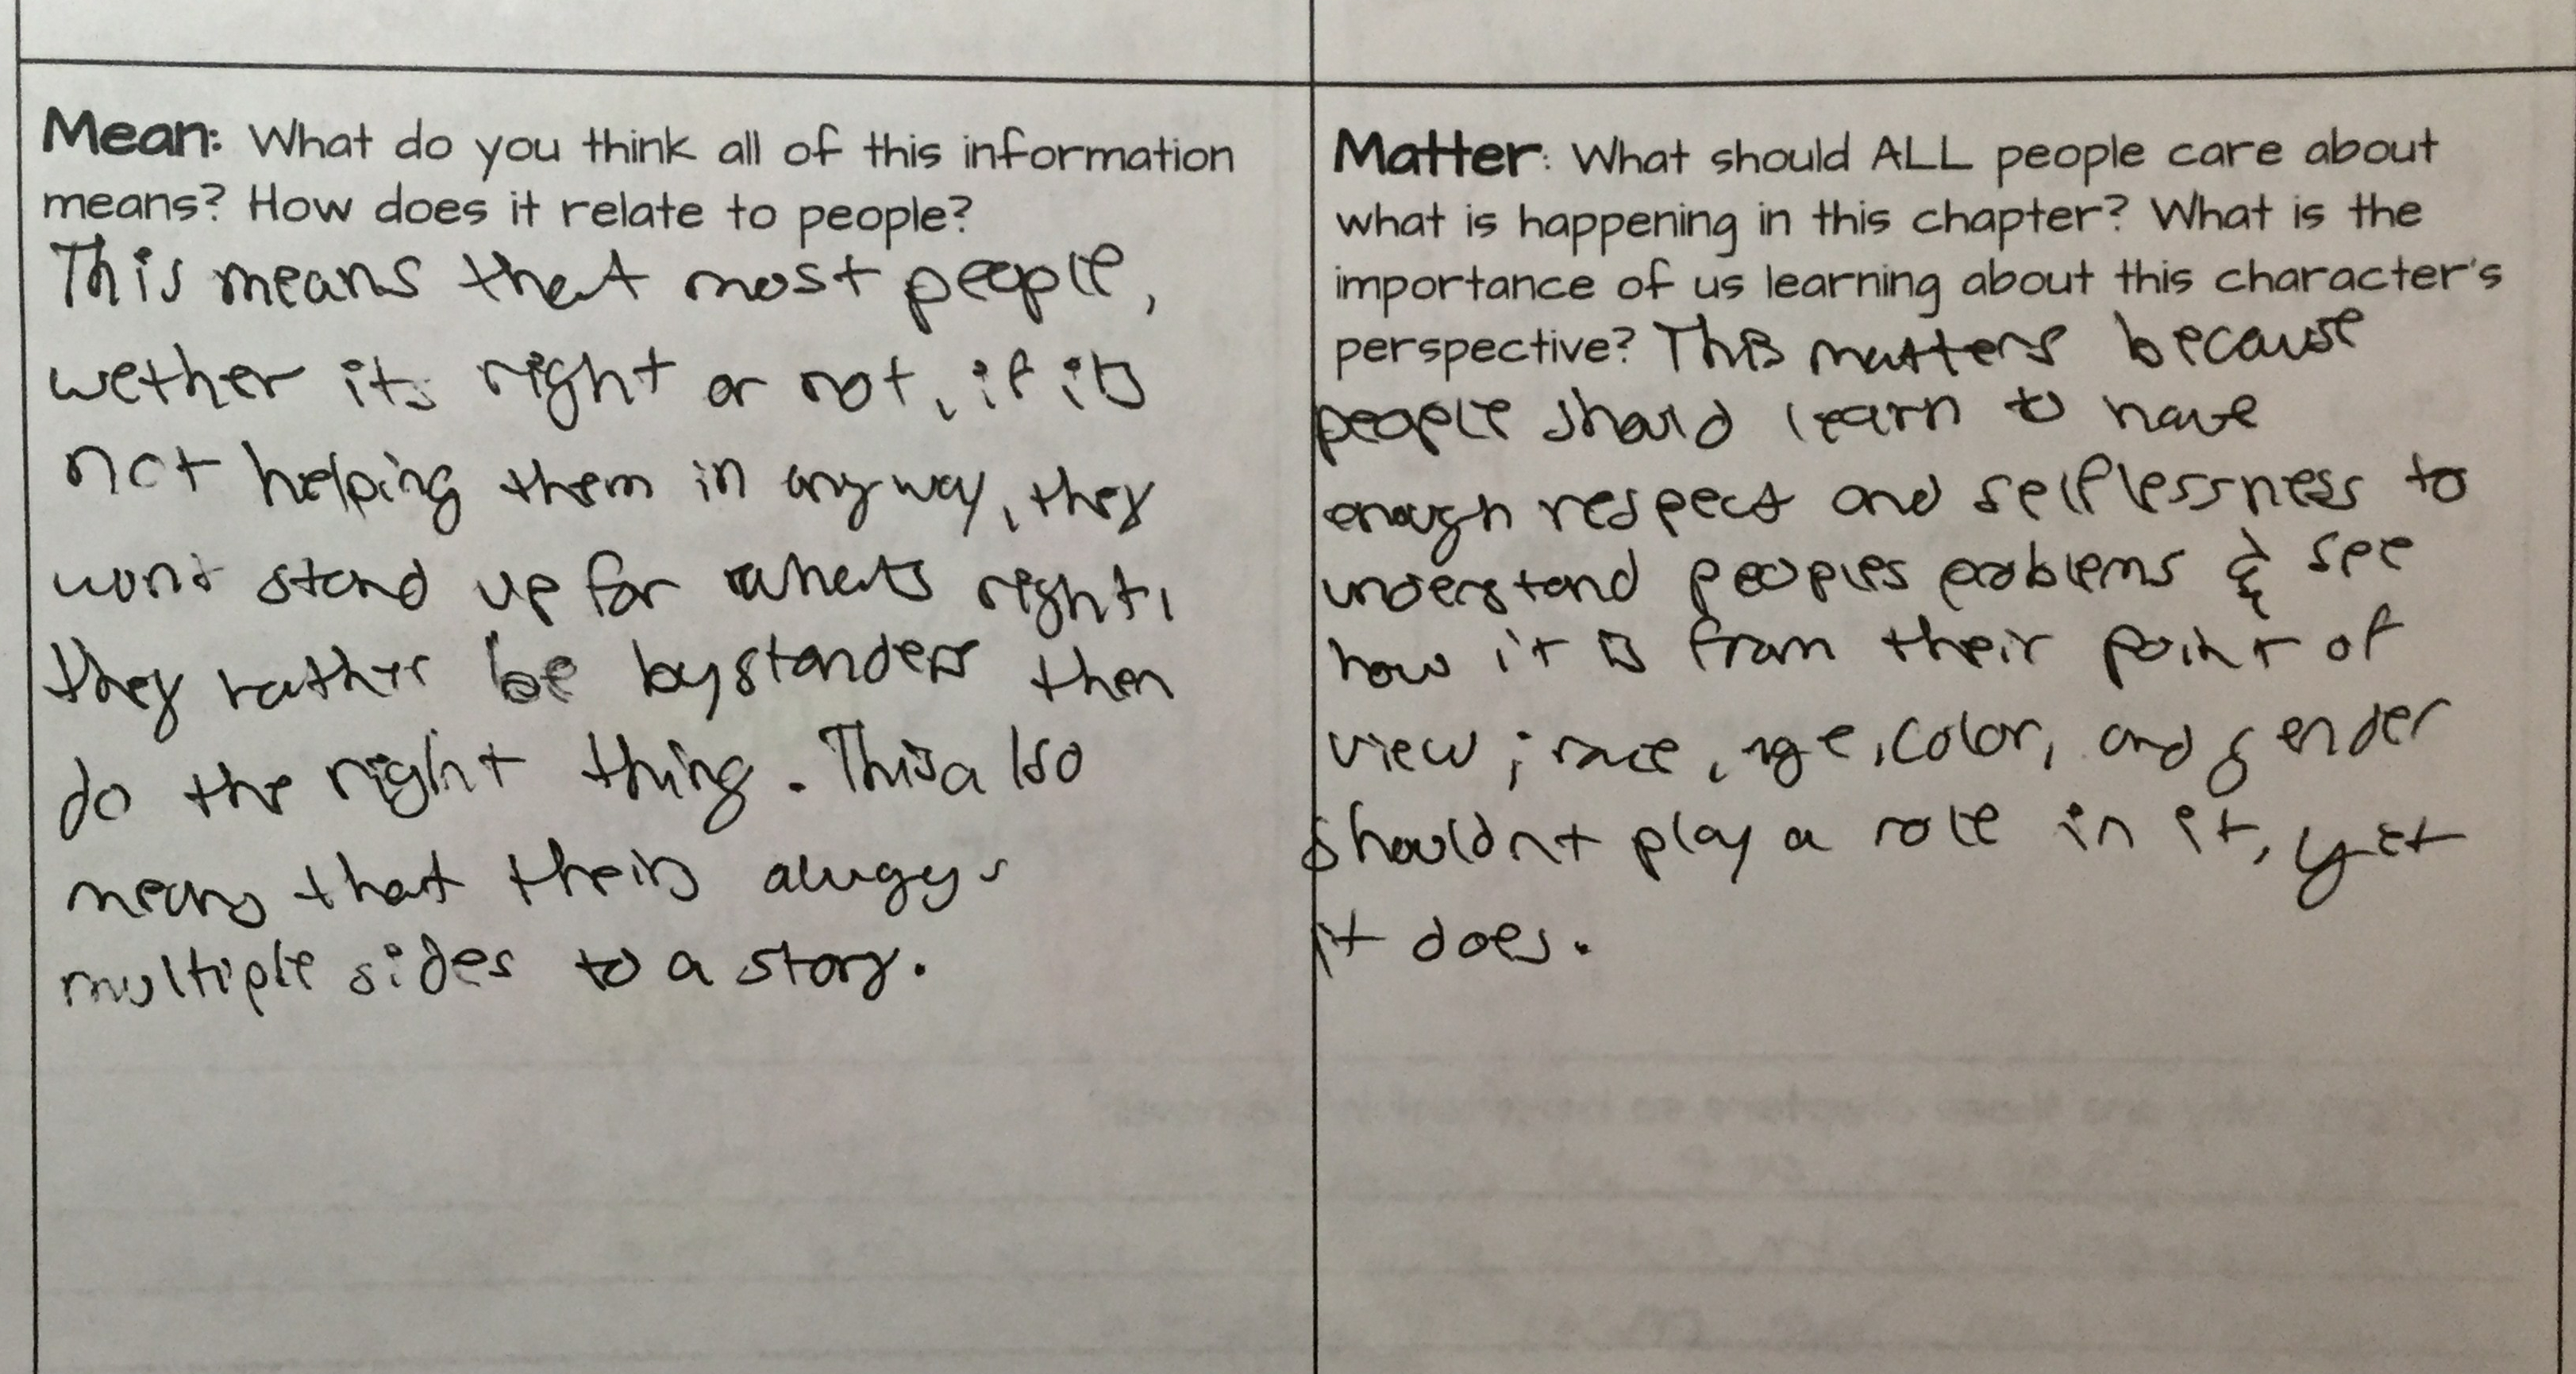 Mean: What do you think all of this information
means? How does it relate to people?
This means that most people,
wether its right or not, if its
not helping them in anyway, they
won't stand up for whats right,
they rather be bystanders then
do the right thing. This also
means that theirs always
multiple sides to a story.
Matter: What should ALL people care about
what is happening in this chapter? What is the
importance of us learning about this character's
perspective? This matters because
people should learn to have
enough respect and selflessness to
understand peoples problems & see
how it is from their point of
view; race, age, color, and gender
shouldnt play a role in it, yet
it does.